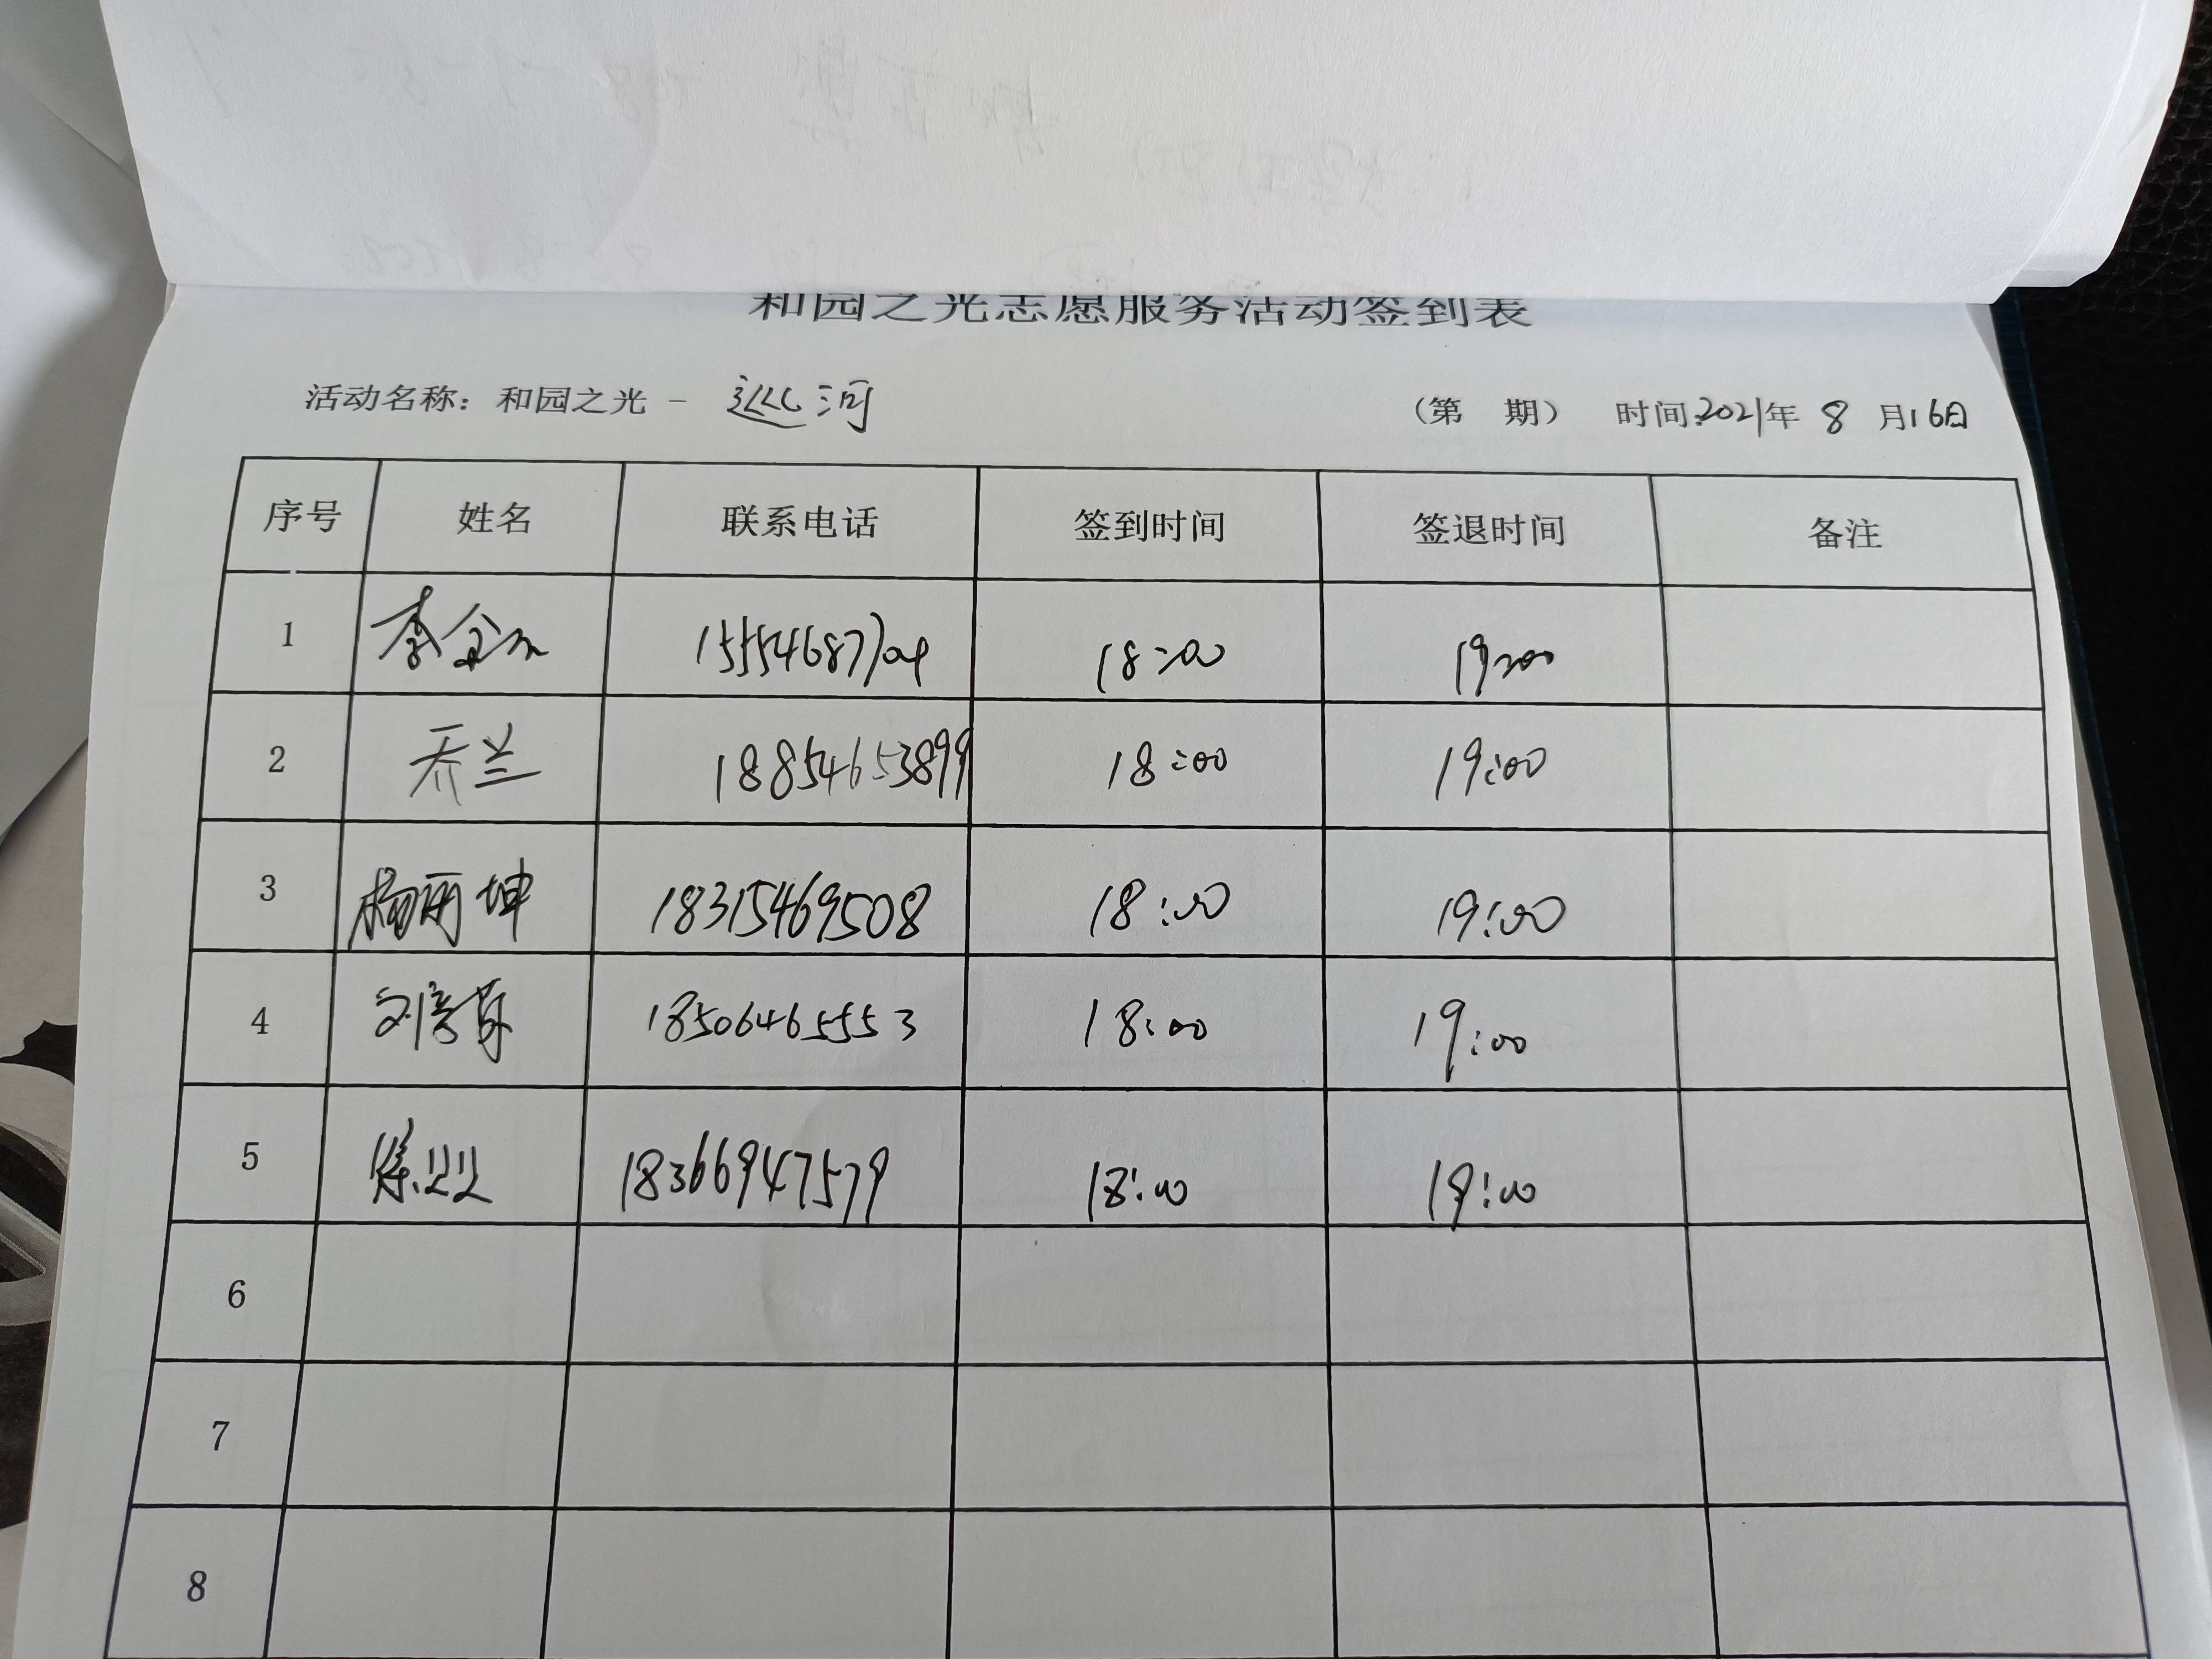 和园之光志愿服务活动签到表
活动名称：和园之光 - 巡河 （第 期） 时间:2021年 8 月16日
序号 姓名 联系电话 签到时间 签退时间 备注
1 李 18:00 19:00
2 乔兰 18854653899 18:00 19:00
3 杨雨坤 18315469508 18:00 19:00
4 刘 18506465553 18:00 19:00
5 徐 18366947579 18:00 19:00
6
7
8